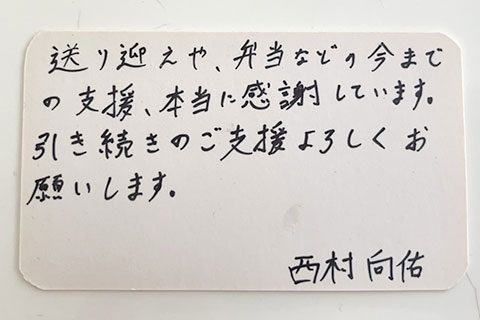 送り迎えや、弁当などの今まで
の支援、本当に感謝しています。
引き続きのご支援よろしくお
願いします。
西村 向佑